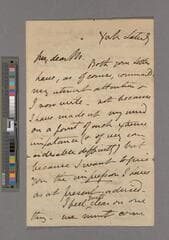 My dear Mr.
Both your letter
have, as of course, commanded
my utmost attention
I now write - not because
I have made up my mind
on a point of such extreme
importance (& of very con-
siderable difficulty) but
because I want to give
you the impression I have
as at present advised.
I feel clear on one
thing - we must